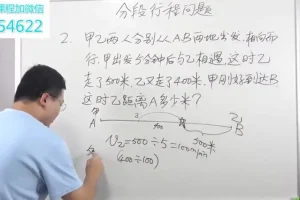 课程加微信
54622
分段行程问题
2. 甲乙两人分别从AB两地出发,相向而
行,甲出发5分钟后与乙相遇,这时乙
走了500米,乙又走了400米,甲刚好到达B
这时乙距离A多少米?
甲
乙
A
B
500米
V乙=500÷5=100m/min
(400÷100)